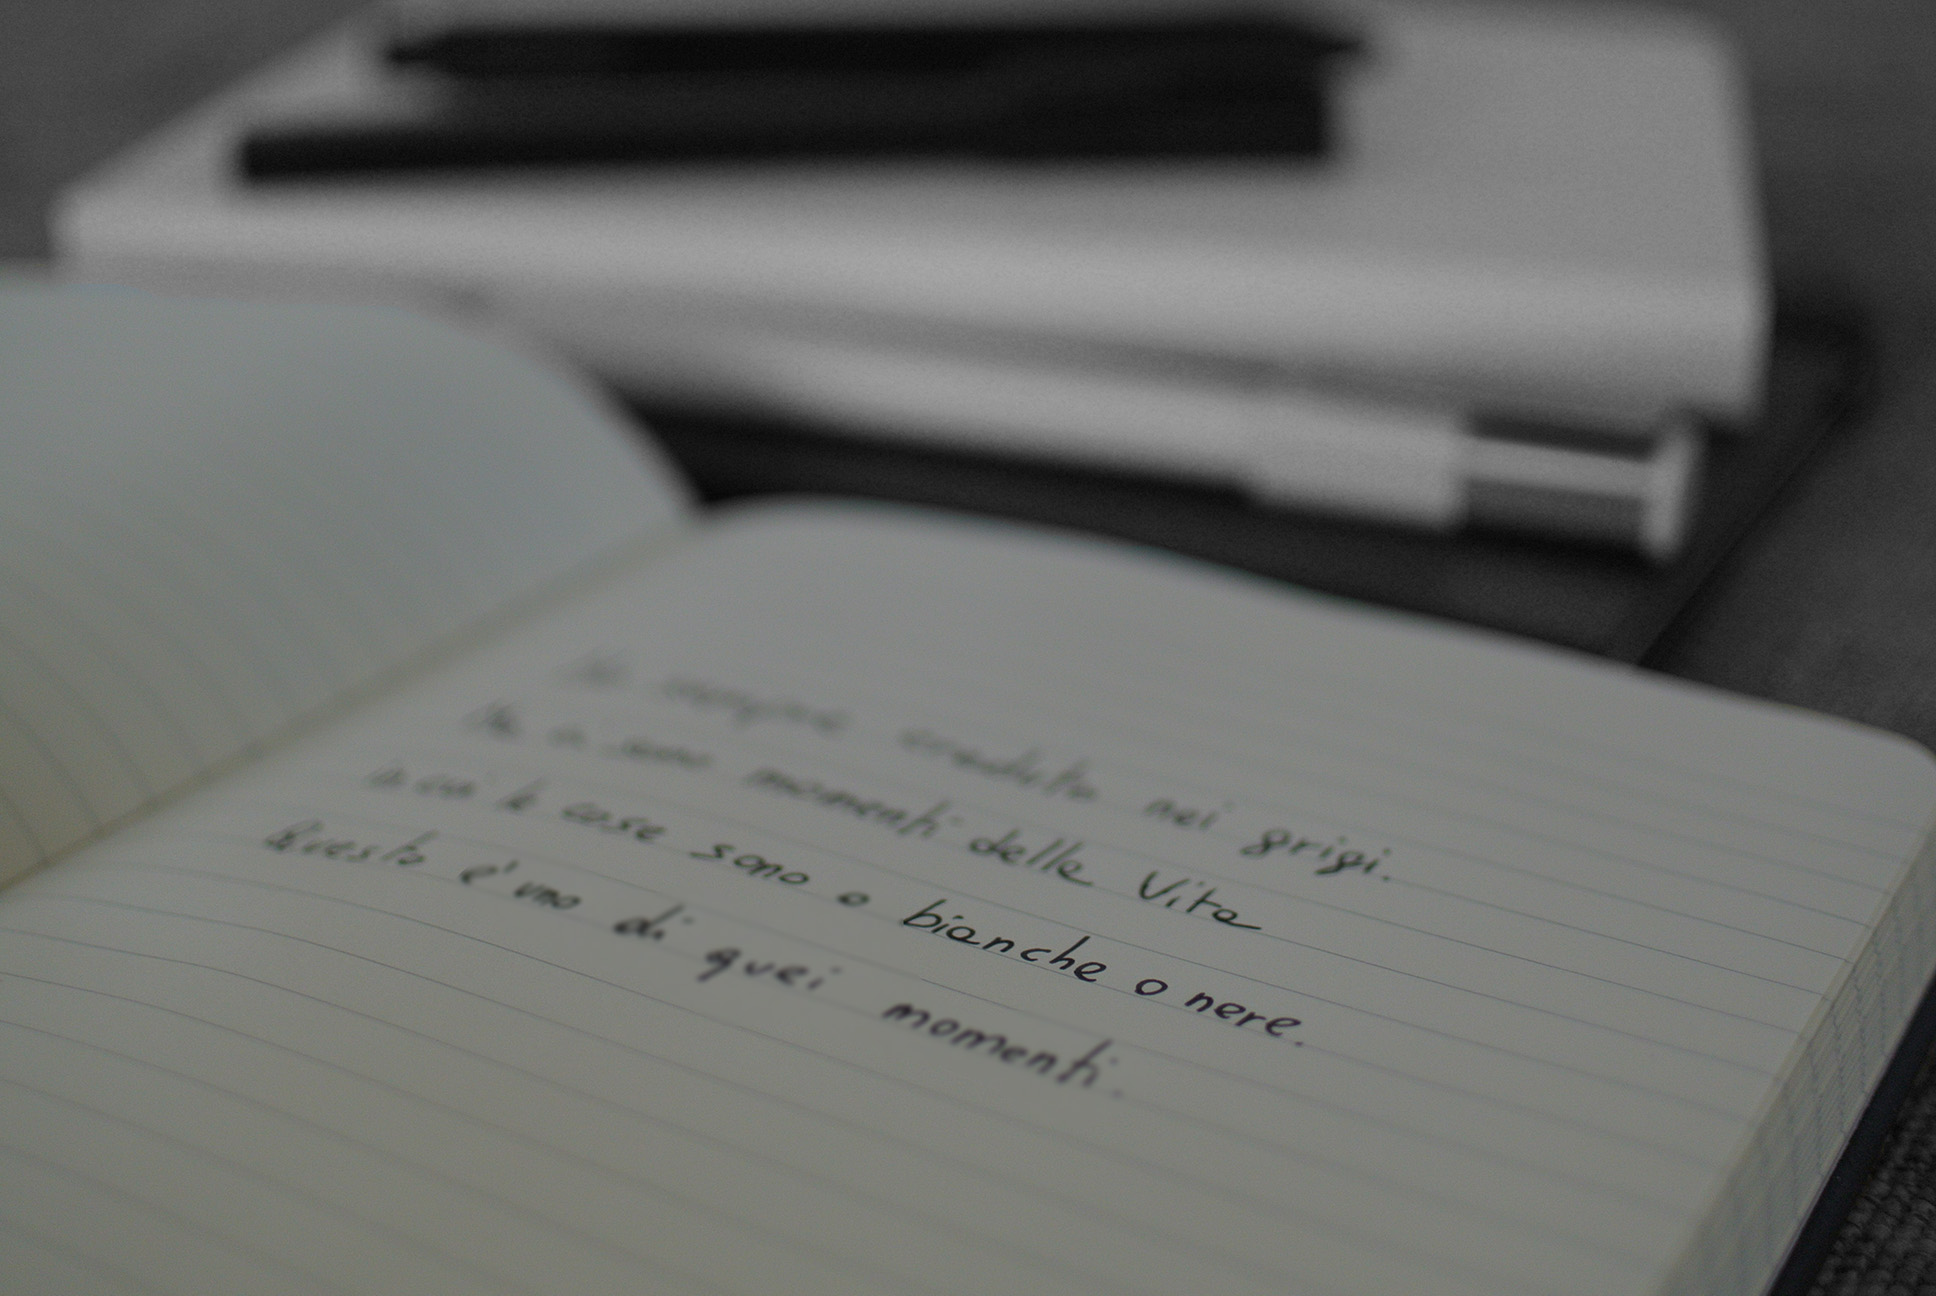 Ho sempre creduto nei grigi.
Ma ci sono momenti della Vita
in cui le cose sono o bianche o nere.
Questo e' uno di quei momenti.